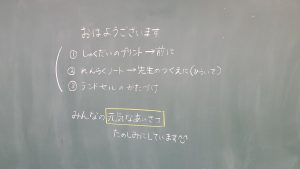 おはようございます
① しゅくだいのプリント→前に
② れんらくノート→先生のつくえに(ひらいて)
③ ランドセルのかたづけ
みんなの元気なあいさつ
たのしみにしています^^